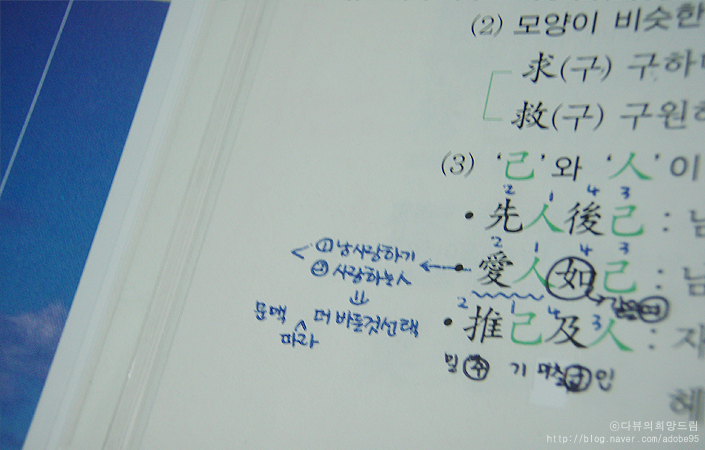 (2) 모양이 비슷한
求(구) 구하
救(구) 구원하
(3) '己'와 '人'이
2 1 4 3
• 先人後己 : 남
2 1 4 3
• 愛人如己 : 남
① 남사랑하기
② 사랑하는人
⇓
문맥 따라 더 바른것선택
2 1 4 3
• 推己及人 : 자
밀 추 기 미칠 급 인
혜
ⓒ다뷰의희망드림
http://blog.naver.com/adobe95